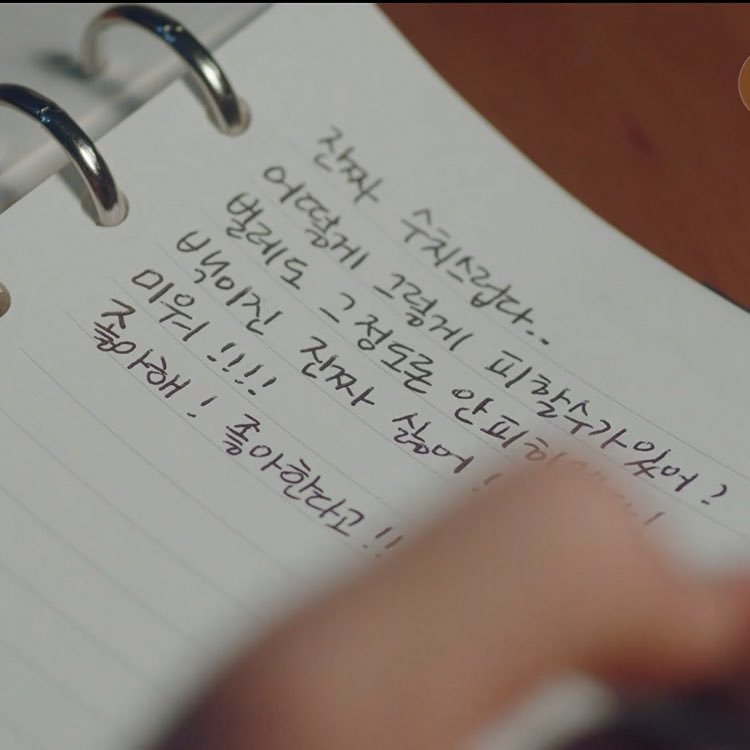 진짜 수치스럽다..
어떻게 그렇게 피할수가있어?
벌레도 그정도론
백이진 진짜 싫어!
미워!!!!
좋아해! 좋아한다고!!